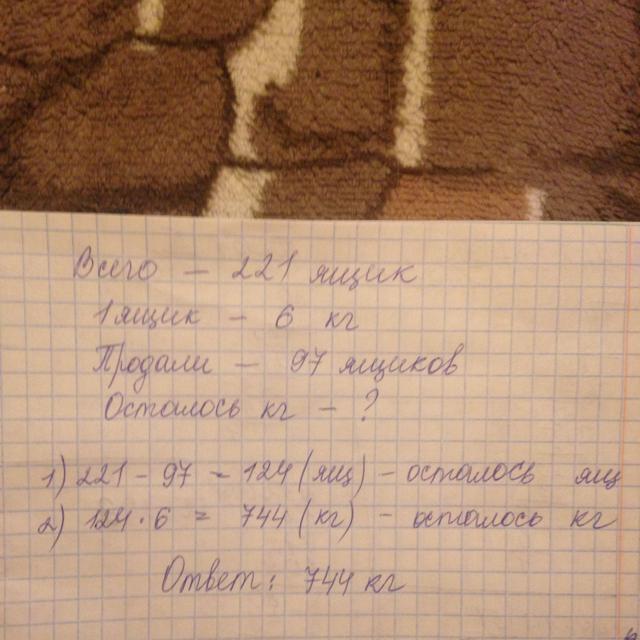 Всего — 221 ящик
1 ящик — 6 кг
Продали — 97 ящиков
Осталось кг — ?
1) 221 - 97 = 124 (ящ) - осталось ящ
2) 124 · 6 = 744 (кг) - осталось кг
Ответ: 744 кг